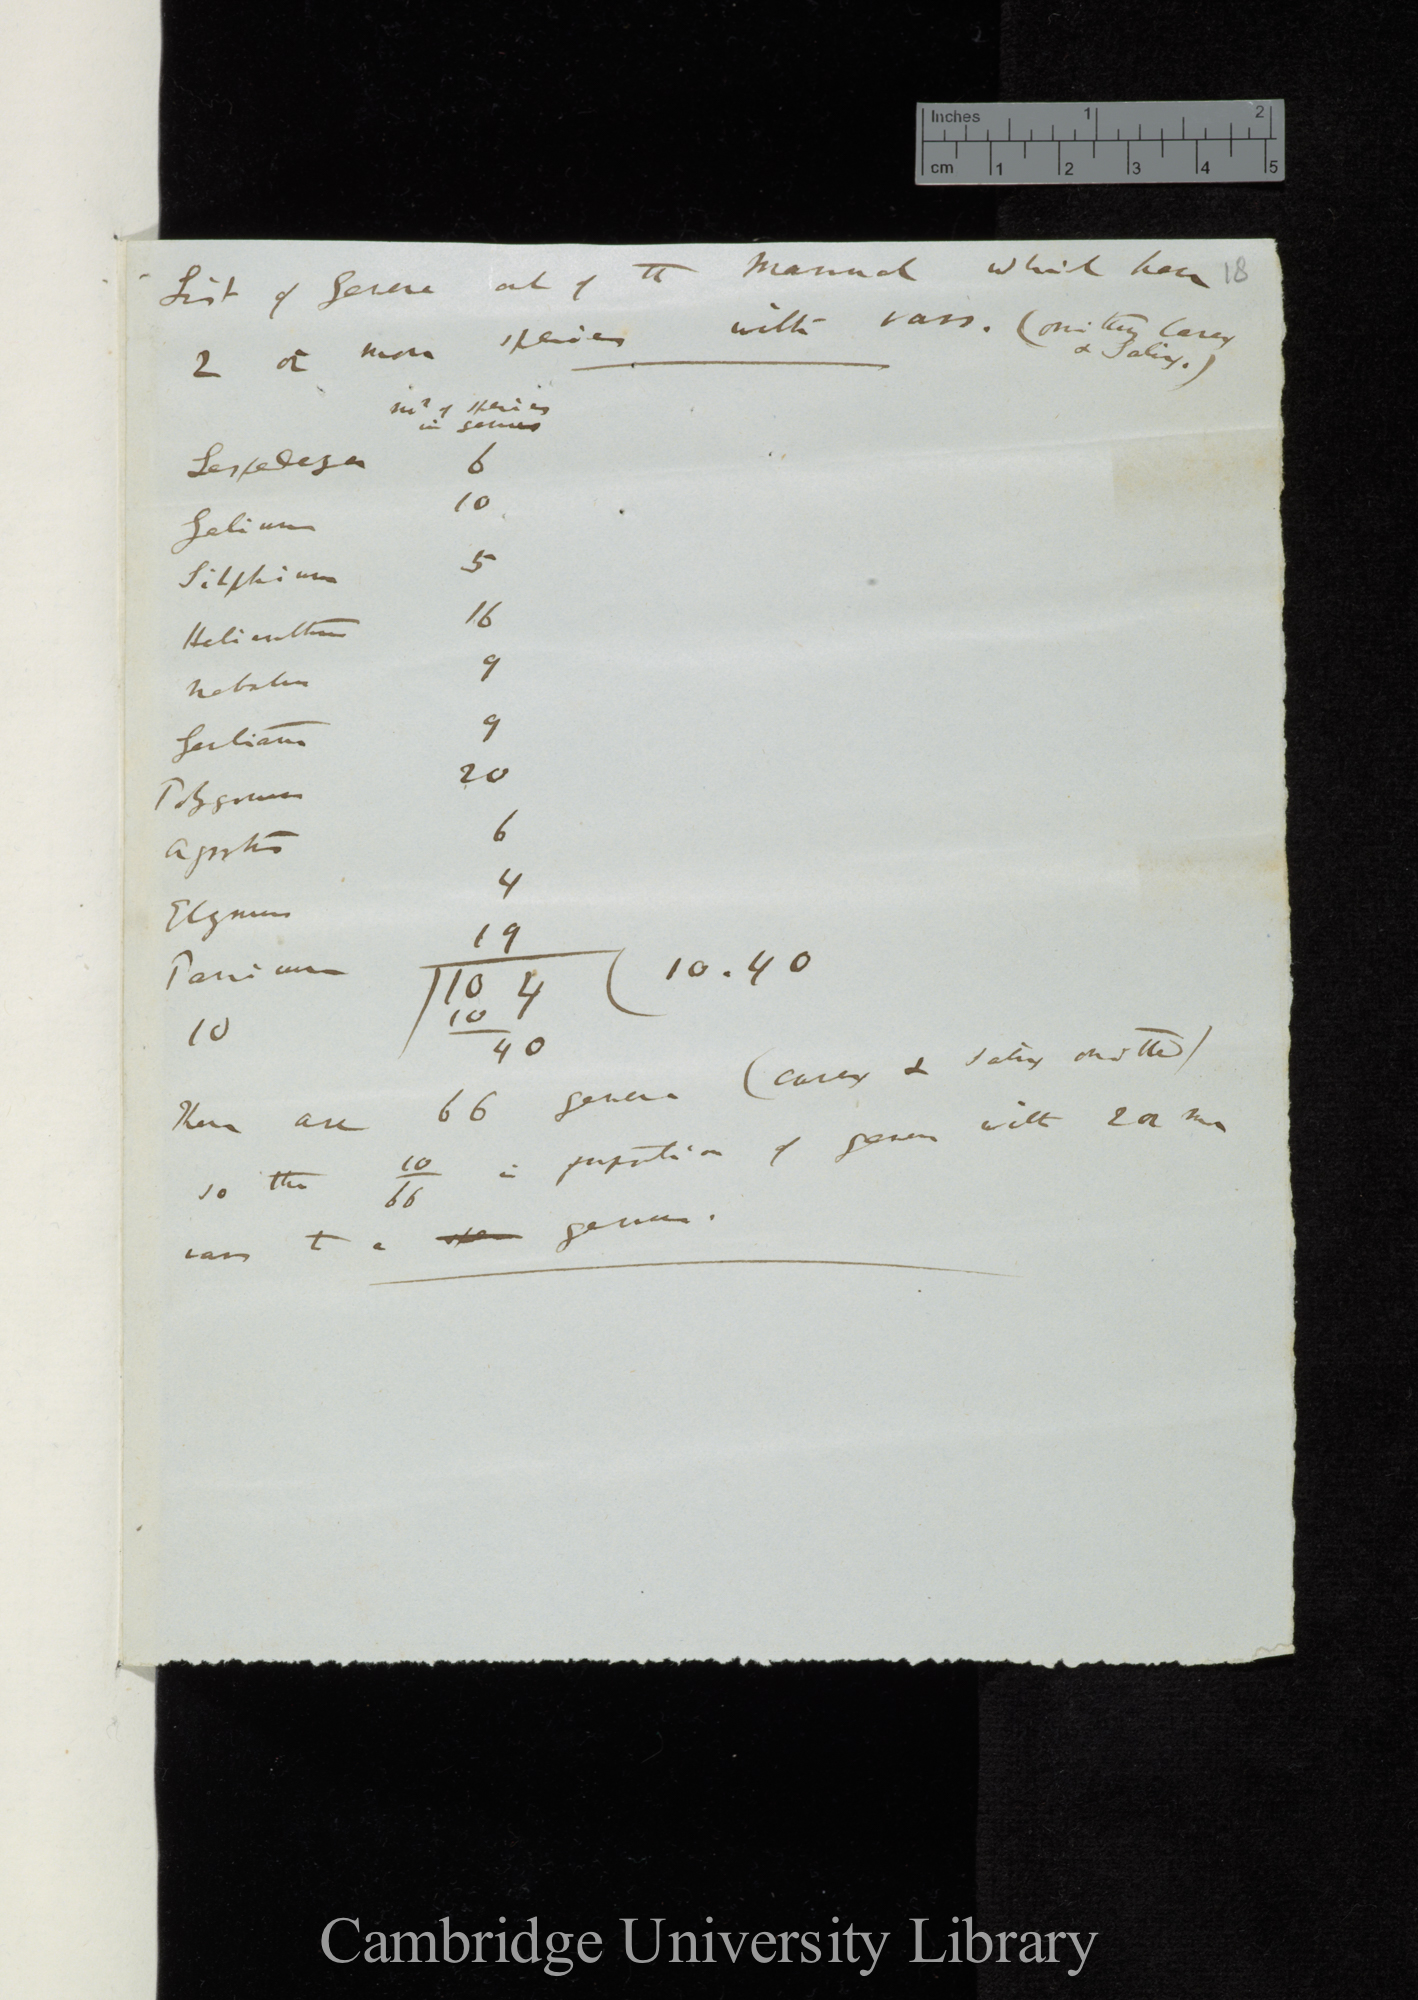 Inches 1 2
cm 1 2 3 4 5
List of Genera out of the Manual which have 18
2 or more species with vars. (omitting Carex
& Salix.)
no of species
in genus
Lespedeza 6
Galium 10
Silphium 5
Helianthus 16
Nabalus 9
Gentiana 9
Polygonum 20
Agrostis 6
Elymus 4
Panicum 19
10 10 4 ( 10.40
10
40
There are 66 genera (Carex & Salix omitted)
so that 10/66 is proportion of genera with 2 or more
vars to a genus.
Cambridge University Library